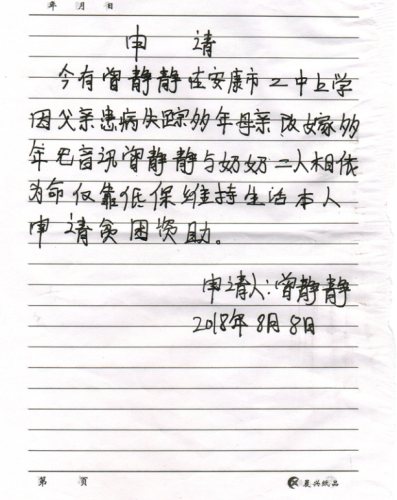 年 月 日
申 请
今有曾静静在安康市二中上学
因父亲患病失踪多年母亲改嫁多
年无音讯曾静静与奶奶二人相依
为命仅靠低保维持生活本人
申请贫困资助。
申请人:曾静静
2018年8月8日
第 页
晨兴纸品